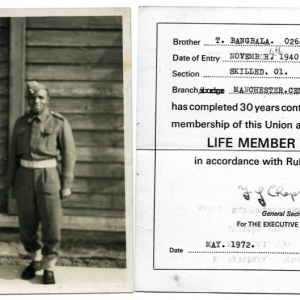 Brother T. BANGBALA. 026
Date of Entry NOVEMBER. 1940
Section SKILLED. 01.
Branch MANCHESTER.CEN
has completed 30 years cont
membership of this Union a
LIFE MEMBER
in accordance with Rul
General Secre
For THE EXECUTIVE
Date MAY. 1972.